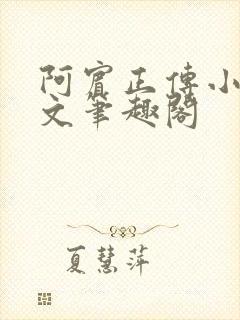 阿賓正傳小
文筆趣閣
夏慧萍